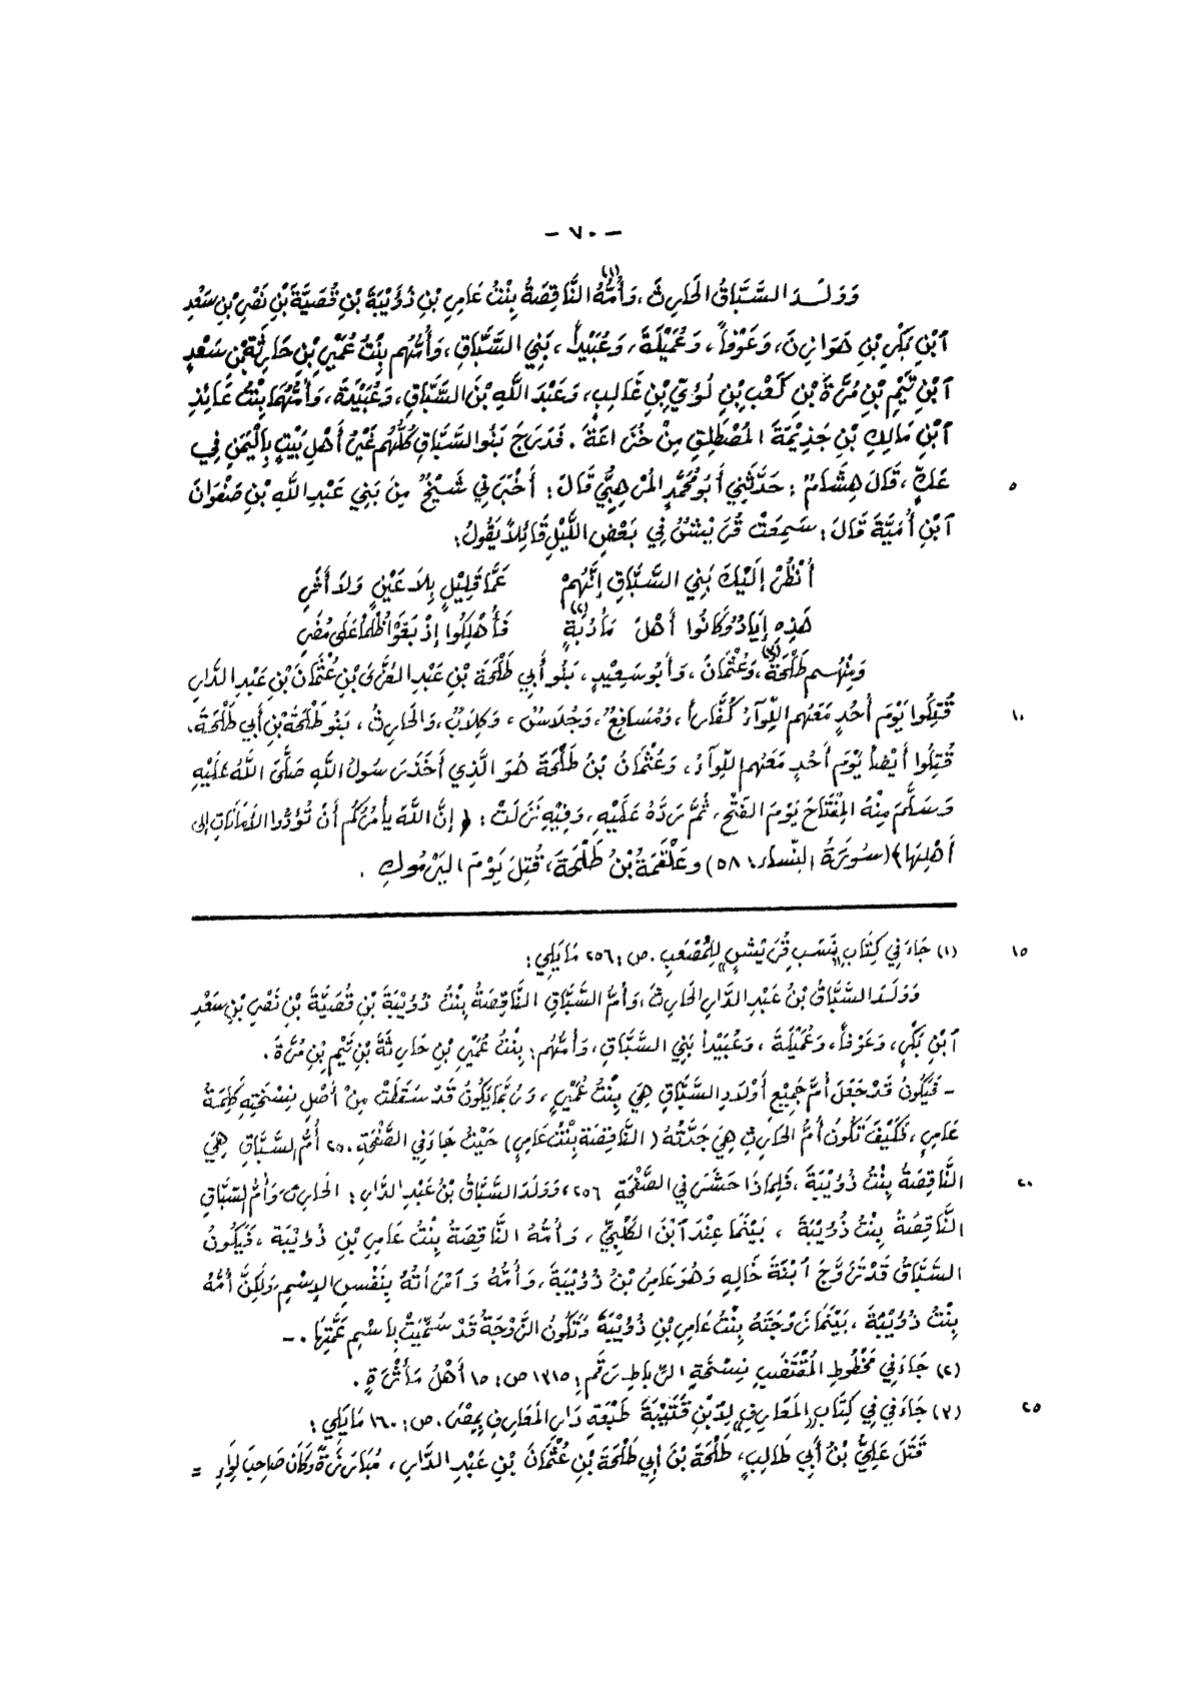 - ٧٠ -
وَوَلَدَ السَّبَّاقُ الحَارِثَ، وَأُمُّهُ(١) النَّاقِصَةُ بِنْتُ عَامِرِ بْنِ ذُؤَيْبَةَ بْنِ قُصَيَّةَ بْنِ نَصْرِ بْنِ سَعْدِ
آبْنِ بَكْرِ بْنِ هَوَازِنَ، وَعَوْفاً، وَعُمَيْلَةَ، وَعُبَيْداً، بَنِي السَّبَّاقِ، وَأُمُّهُم بِنْتُ عُمَيْرِ بْنِ حَارِثَةَ بْنِ سَعْدِ
آبْنِ تَيْمِ بْنِ مُرَّةَ بْنِ كَعْبِ بْنِ لُؤَيِّ بْنِ غَالِبٍ، وَعَبْدَ اللَّهِ بْنَ السَّبَّاقِ، وَعُبَيْدَةَ، وَأُمُّهُمَا بِنْتُ عَائِذِ
آبْنِ مَالِكِ بْنِ جَذِيْمَةَ المُصْطَلِقِ مِنْ خُزَاعَةَ. فَدَرَجَ بَنُو السَّبَّاقِ كُلُّهُم غَيْرُ أَهْلِ بَيْتٍ بِاليَمَنِ فِي
عَكٍّ، قَالَ هِشَامٌ: حَدَّثَنِي أَبُو مُحَمَّدٍ المُرْهِبِيُّ قَالَ: أَخْبَرَنِي شَيْخٌ مِنْ بَنِي عَبْدِ اللَّهِ بْنِ صَفْوَانَ ٥
آبْنِ أُمَيَّةَ قَالَ: سَمِعَتْ قُرَيْشٌ فِي بَعْضِ اللَّيْلِ قَائِلاً يَقُولُ:
أُنْظُرْ إِلَيْكَ بَنِي السَّبَّاقِ إِنَّهُمْ عَمَّا قَلِيْلٍ بِلاَ عَيْنٍ وَلاَ أَثَرِ
هَذِهِ إِيَادٌ وَكَانُوا أَهْلَ مَأْدُبَةٍ(٢) فَأُهْلِكُوا إِذْ بَغَوْا ظُلْماً عَلَى مُضَرِ
وَمِنْهُم طَلْحَةُ(٣)، وَعُثْمَانَ، وَأَبُو سَعِيْدٍ، بَنُو أَبِي طَلْحَةَ بْنِ عَبْدِ العُزَّى بْنِ عُثْمَانَ بْنِ عَبْدِ الدَّارِ
قُتِلُوا يَوْمَ أُحُدٍ مَعَهُم اللِّوَاءُ كُفَّاراً، وَمُسَافِعٌ، وَجُلَاسٌ، وَكِلَابٌ، وَالحَارِثُ، بَنُو طَلْحَةَ بْنِ أَبِي طَلْحَةَ، ١٠
قُتِلُوا أَيْضاً يَوْمَ أُحُدٍ مَعَهُم اللِّوَاءُ، وَعُثْمَانُ بْنُ طَلْحَةَ هُوَ الَّذِي أَخَذَ رَسُولُ اللَّهِ صَلَّى اللَّهُ عَلَيْهِ
وَسَلَّمَ مِنْهُ المِفْتَاحَ يَوْمَ الفَتْحِ، ثُمَّ رَدَّهُ عَلَيْهِ، وَفِيْهِ نَزَلَتْ: ﴿ إِنَّ اللَّهَ يَأْمُرُكُمْ أَنْ تُؤَدُّوا الأَمَانَاتِ إِلَى
أَهْلِهَا﴾ (سُورَةُ النِّسَاءِ \ ٥٨) وَعَلْقَمَةُ بْنُ طَلْحَةَ، قُتِلَ يَوْمَ اليَرْمُوكِ .
(١) جَاءَ فِي كِتَابِ «نَسَبِ قُرَيْشٍ» لِلْمُصْعَبِ. ص: ٢٥٦ مَا يَلِي: ١٥
وَوَلَدَ السَّبَّاقُ بْنُ عَبْدِ الدَّارِ الحَارِثَ، وَأُمُّ السَّبَّاقِ النَّاقِصَةُ بِنْتُ ذُؤَيْبَةَ بْنِ قُصَيَّةَ بْنِ نَصْرِ بْنِ سَعْدِ
آبْنِ بَكْرٍ، وَعَوْفاً، وَعُمَيْلَةَ، وَعُبَيْداً بَنِي السَّبَّاقِ، وَأُمُّهُم: بِنْتُ عُمَيْرِ بْنِ حَارِثَةَ بْنِ تَيْمِ بْنِ مُرَّةَ.
- فَيَكُونُ قَدْ جَعَلَ أُمَّ جَمِيْعِ أَوْلَادِ السَّبَّاقِ هِيَ بِنْتُ عُمَيْرٍ، وَرُبَّمَا يَكُونُ قَدْ سَقَطَتْ مِنْ أَصْلِ نُسْخَتِهِ كَلِمَةُ
عَامِرٍ، فَكَيْفَ تَكُونُ أُمُّ الحَارِثِ هِيَ جَدَّتُهُ (النَّاقِصَةُ بِنْتُ عَامِرٍ) حَيْثُ جَاءَ فِي الصَّفْحَةِ ٢٥٠ أُمُّ السَّبَّاقِ هِيَ
النَّاقِصَةُ بِنْتُ ذُؤَيْبَةَ، فَلِمَاذَا حَشَرَ فِي الصَّفْحَةِ ٢٥٦، وَوَلَدَ السَّبَّاقُ بْنُ عَبْدِ الدَّارِ: الحَارِثَ وَأُمُّ السَّبَّاقِ ٢٠
النَّاقِصَةُ بِنْتُ ذُؤَيْبَةَ، بَيْنَمَا عِنْدَ آبْنِ الكَلْبِيِّ، وَأُمُّهُ النَّاقِصَةُ بِنْتُ عَامِرِ بْنِ ذُؤَيْبَةَ، فَيَكُونُ
السَّبَّاقُ قَدْ تَزَوَّجَ آبْنَةَ خَالِهِ وَهُوَ عَامِرُ بْنُ ذُؤَيْبَةَ، وَأُمُّهُ وَآمْرَأَتُهُ بِنَفْسِ الإِسْمِ وَلَكِنَّ أُمُّهُ
بِنْتُ ذُؤَيْبَةَ، بَيْنَمَا زَوْجَتَهُ بِنْتُ عَامِرِ بْنِ ذُؤَيْبَةَ وَتَكُونُ الزَّوْجَةُ قَدْ سُمِّيَتْ بِاسْمِ عَمَّتِهَا. -
(٢) جَاءَ فِي مَخْطُوطِ المُقْتَضَبِ نُسْخَةِ الرِّبَاطِ رَقَم: ١٣١٥ ص: ١٥ أَهْلُ مَأْثُرَةٍ.
(٣) جَاءَ فِي فِي كِتَابِ «المَعَارِفِ» لِابْنِ قُتَيْبَةَ طَبْعَةِ دَارِ المَعَارِفِ بِمِصْرَ. ص: ١٦٠ مَا يَلِي: ٢٥
قَتَلَ عَلِيُّ بْنُ أَبِي طَالِبٍ، طَلْحَةَ بْنَ أَبِي طَلْحَةَ بْنِ عُثْمَانَ بْنِ عَبْدِ الدَّارِ، مُبَارَزَةً وَكَانَ صَاحِبَ لِوَاءِ =